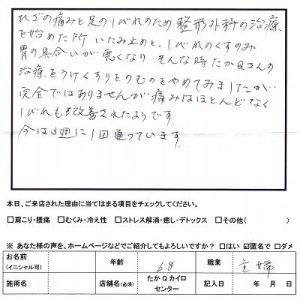 ひざの痛みと足のしびれのため整形外科の治療
を始めた所 いたみ止めと、しびれのくすりのみ
胃の具合いが悪くなり そんな時たかQさんの
治療をうけくすりをのむのをやめてみましたが
完全ではありませんが痛みはほとんどなく
しびれも改善されたようです
今は週に1回通っています。
本日、ご来店された理由に当てはまる項目をチェックしてください。
□肩こり・腰痛 □むくみ・冷え性 □ストレス解消・癒し・デトックス □その他( )
※ あなた様の声を、ホームページなどでご紹介してもよろしいですか? □はい ☑匿名で □ダメ
お名前 (イニシャル可) 年齢 68 職業 主婦
施術名 店舗名(必須) たかQカイロセンター 記入日 年 月 日